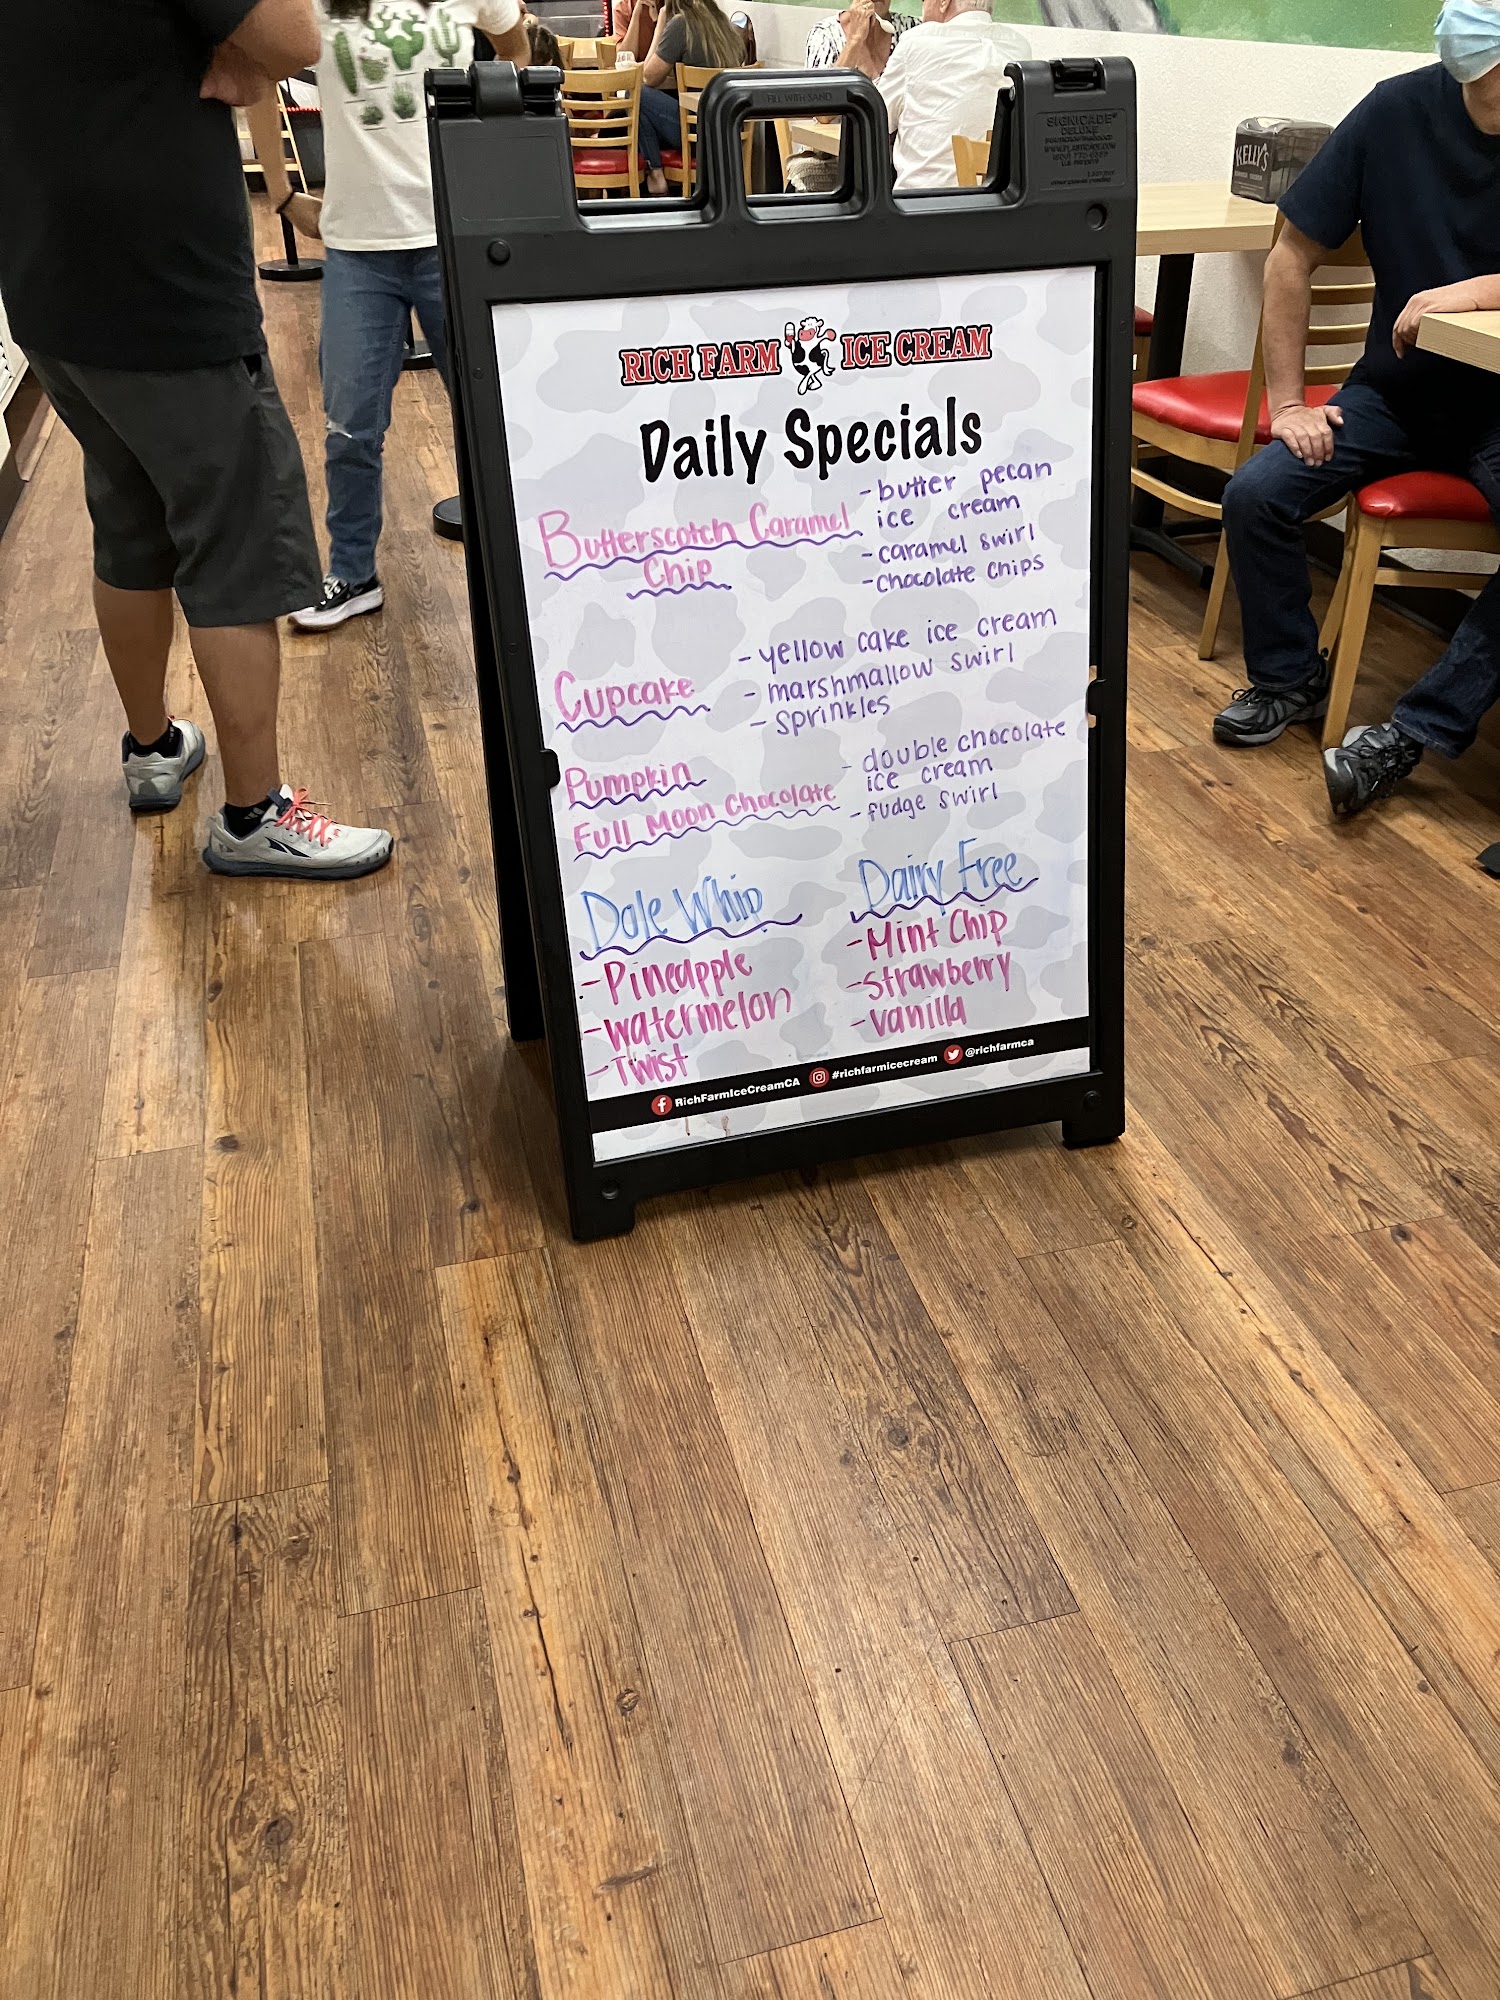 FILL WITH SAND
SIGNICADE
DELUXE
KELLY'S
RICH FARM ICE CREAM
Daily Specials
Butterscotch Caramel
Chip
- butter pecan
ice cream
- caramel swirl
- chocolate chips
Cupcake
- yellow cake ice cream
- marshmallow swirl
- sprinkles
Pumpkin
Full Moon Chocolate
- double chocolate
ice cream
- fudge swirl
Dole Whip
- Pineapple
- Watermelon
- Twist
Dairy Free
- Mint Chip
- Strawberry
- Vanilla
RichFarmIceCreamCA #richfarmicecream @richfarmca